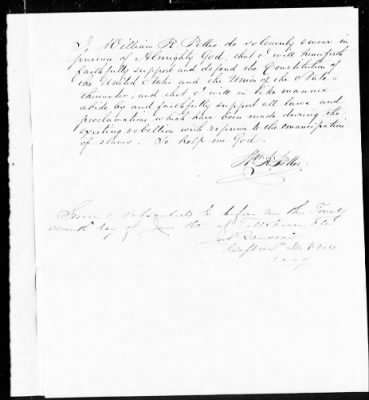 I William R Pettes do solemnly swear in
presence of Almighty God, that I will henceforth
faithfully support and defend the Constitution of
the United States and the Union of the States
thereunder, and that I will in like manner
abide by and faithfully support all laws and
proclamations which have been made during the
existing rebellion with reference to the emancipation
of slaves. So help me God.
Wm R. Pettes
Sworn & subscribed to before me this Twenty
seventh day of